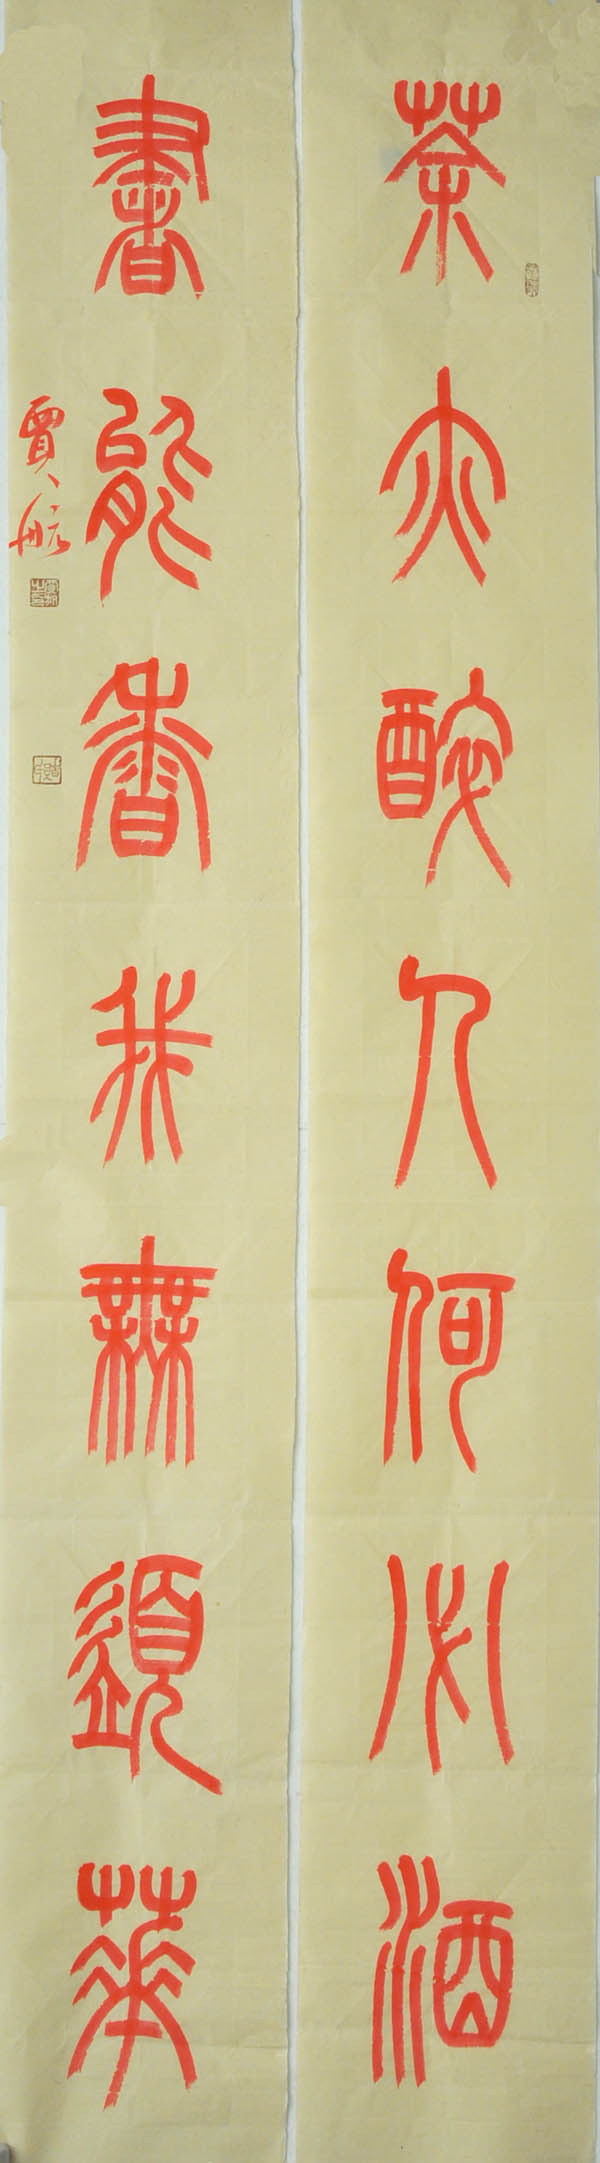 茶亦醉人何必酒
書能香我無須華
賈航